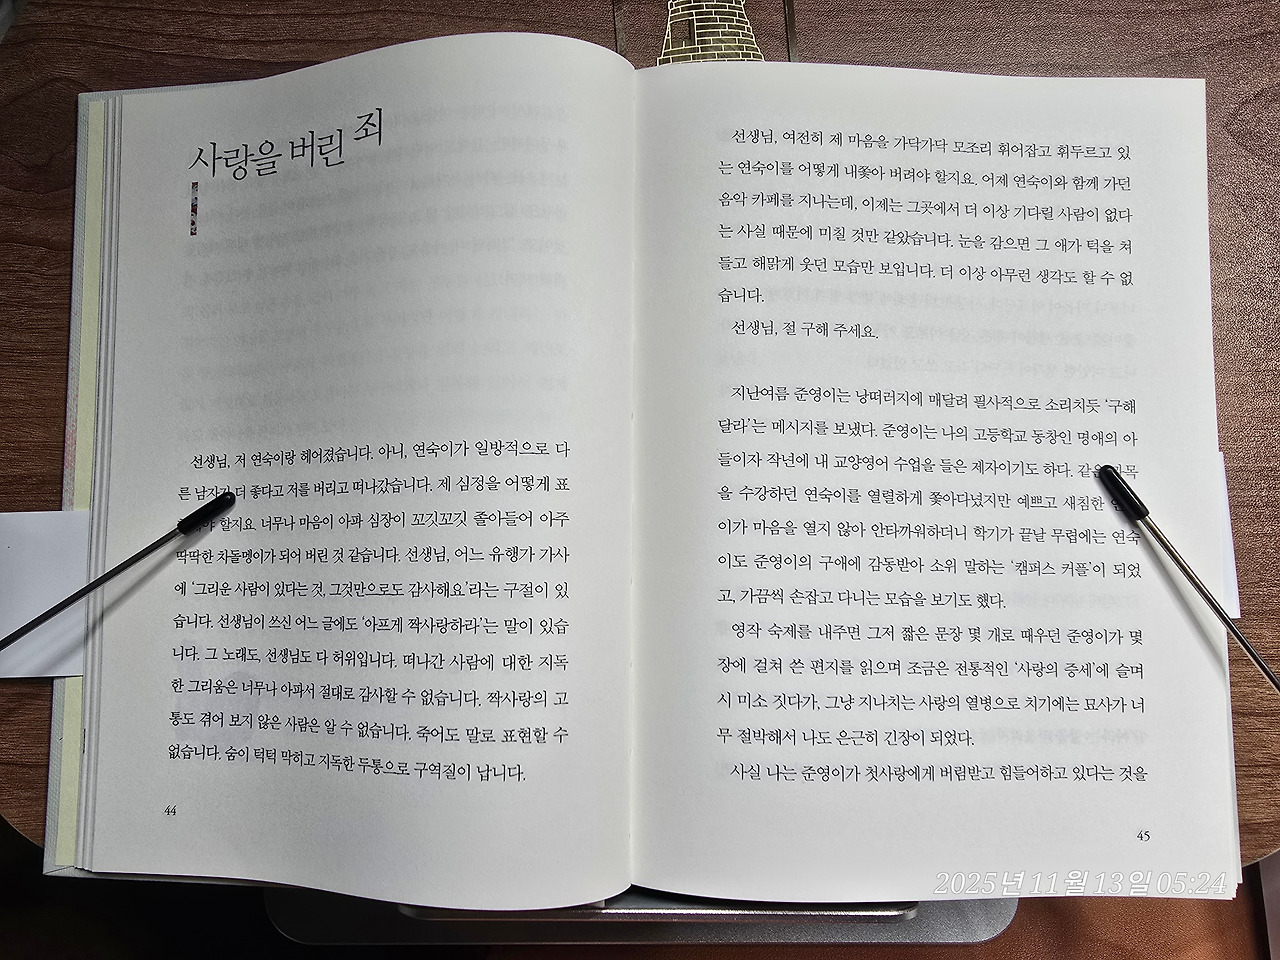 사랑을 버린 죄
선생님, 저 연숙이랑 헤어졌습니다. 아니, 연숙이가 일방적으로 다
른 남자가 더 좋다고 저를 버리고 떠나갔습니다. 제 심정을 어떻게 표
할지요. 너무나 마음이 아파 심장이 꼬깃꼬깃 졸아들어 아주
딱딱한 차돌멩이가 되어 버린 것 같습니다. 선생님, 어느 유행가 가사
에 ‘그리운 사람이 있다는 것, 그것만으로도 감사해요’라는 구절이 있
습니다. 선생님이 쓰신 어느 글에도 ‘아프게 짝사랑하라’는 말이 있습
니다. 그 노래도, 선생님도 다 허위입니다. 떠나간 사람에 대한 지독
한 그리움은 너무나 아파서 절대로 감사할 수 없습니다. 짝사랑의 고
통도 겪어 보지 않은 사람은 알 수 없습니다. 죽어도 말로 표현할 수
없습니다. 숨이 턱턱 막히고 지독한 두통으로 구역질이 납니다.
44
선생님, 여전히 제 마음을 가닥가닥 모조리 휘어잡고 휘두르고 있
는 연숙이를 어떻게 내쫓아 버려야 할지요. 어제 연숙이와 함께 가던
음악 카페를 지나는데, 이제는 그곳에서 더 이상 기다릴 사람이 없다
는 사실 때문에 미칠 것만 같았습니다. 눈을 감으면 그 애가 턱을 쳐
들고 해맑게 웃던 모습만 보입니다. 더 이상 아무런 생각도 할 수 없
습니다.
선생님, 절 구해 주세요.
지난여름 준영이는 낭떠러지에 매달려 필사적으로 소리치듯 ‘구해
달라’는 메시지를 보냈다. 준영이는 나의 고등학교 동창인 명애의 아
들이자 작년에 내 교양영어 수업을 들은 제자이기도 하다. 같은 과목
을 수강하던 연숙이를 열렬하게 쫓아다녔지만 예쁘고 새침한
이가 마음을 열지 않아 안타까워하더니 학기가 끝날 무렵에는 연숙
이도 준영이의 구애에 감동받아 소위 말하는 ‘캠퍼스 커플’이 되었
고, 가끔씩 손잡고 다니는 모습을 보기도 했다.
영작 숙제를 내주면 그저 짧은 문장 몇 개로 때우던 준영이가 몇
장에 걸쳐 쓴 편지를 읽으며 조금은 전통적인 ‘사랑의 증세’에 슬며
시 미소 짓다가, 그냥 지나치는 사랑의 열병으로 치기에는 묘사가 너
무 절박해서 나도 은근히 긴장이 되었다.
사실 나는 준영이가 첫사랑에게 버림받고 힘들어하고 있다는 것을
45
2025년 11월 13일 05:24